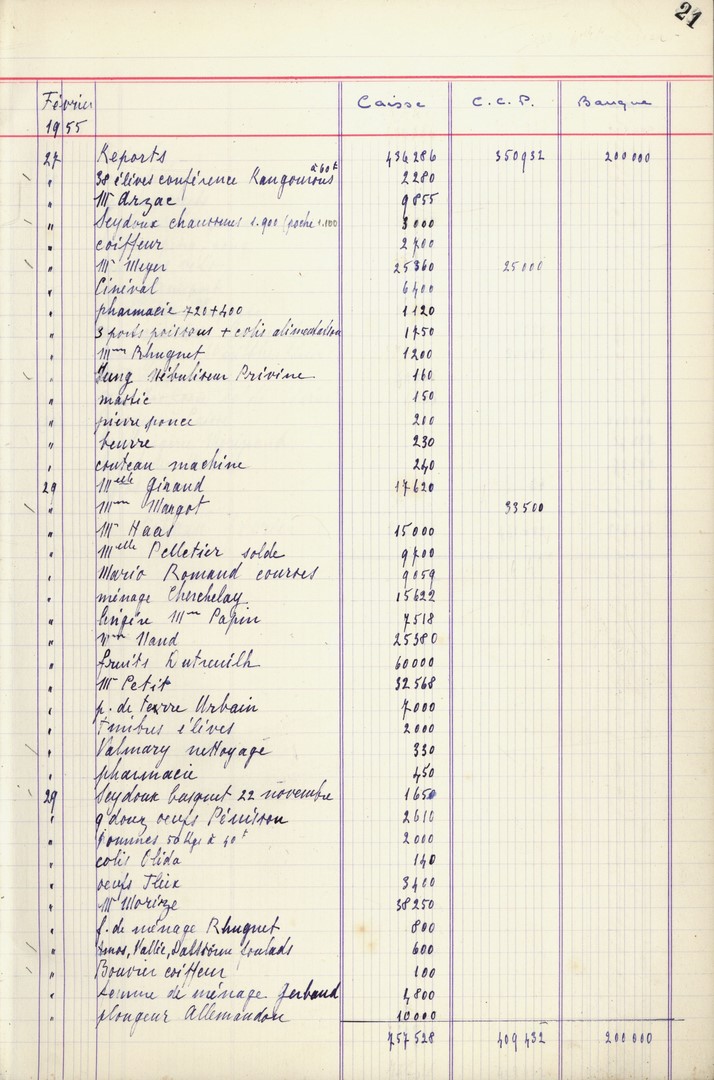 21
Février 1955 Caisse C.C.P. Banque
27 Reports 434286 350932 200000
" 38 élèves conférence Kangourous à 60f 2280
" Mr Arzac 9855
" Seydoux chaussures 1.900 (poche 1.100 3000
" coiffeur 2700
" Mr Meyer 25360 25000
" Cinéval 6400
" pharmacie 720+400 1120
" 3 ports poissons + colis alimentation 1750
" Mme Rhugnet 1200
" Jung nébuliseur Privine 160
" mastic 150
" pierre ponce 200
" beurre 230
" couteau machine 240
29 Melle Giraud 17620
" Mme Margot 33500
" Mr Haas 15000
" Melle Pelletier solde 9700
" Mario Romand courses 9059
" ménage Cherchelay 15622
" lingère Mme Papin 7518
" Mme Nand 25380
" fruits Dutreuilh 60000
" Mr Petit 32568
" p. de terre Urbain 7000
" Timbres élèves 2000
" Valmary nettoyage 330
" pharmacie 450
29 Seydoux basquet 22 novembre 1650
" 9 douz oeufs Pénisson 2610
" pommes 50 Kgs à 40f 2000
" colis Olida 140
" oeufs 3400
" Mr Morize 38250
" f. de ménage Rhugnet 800
" Vallée, 600
" Bouvier coiffeur 100
" Femme de ménage Gerbaud 4800
" plongeur Allemandou 10000
757528 409432 200000